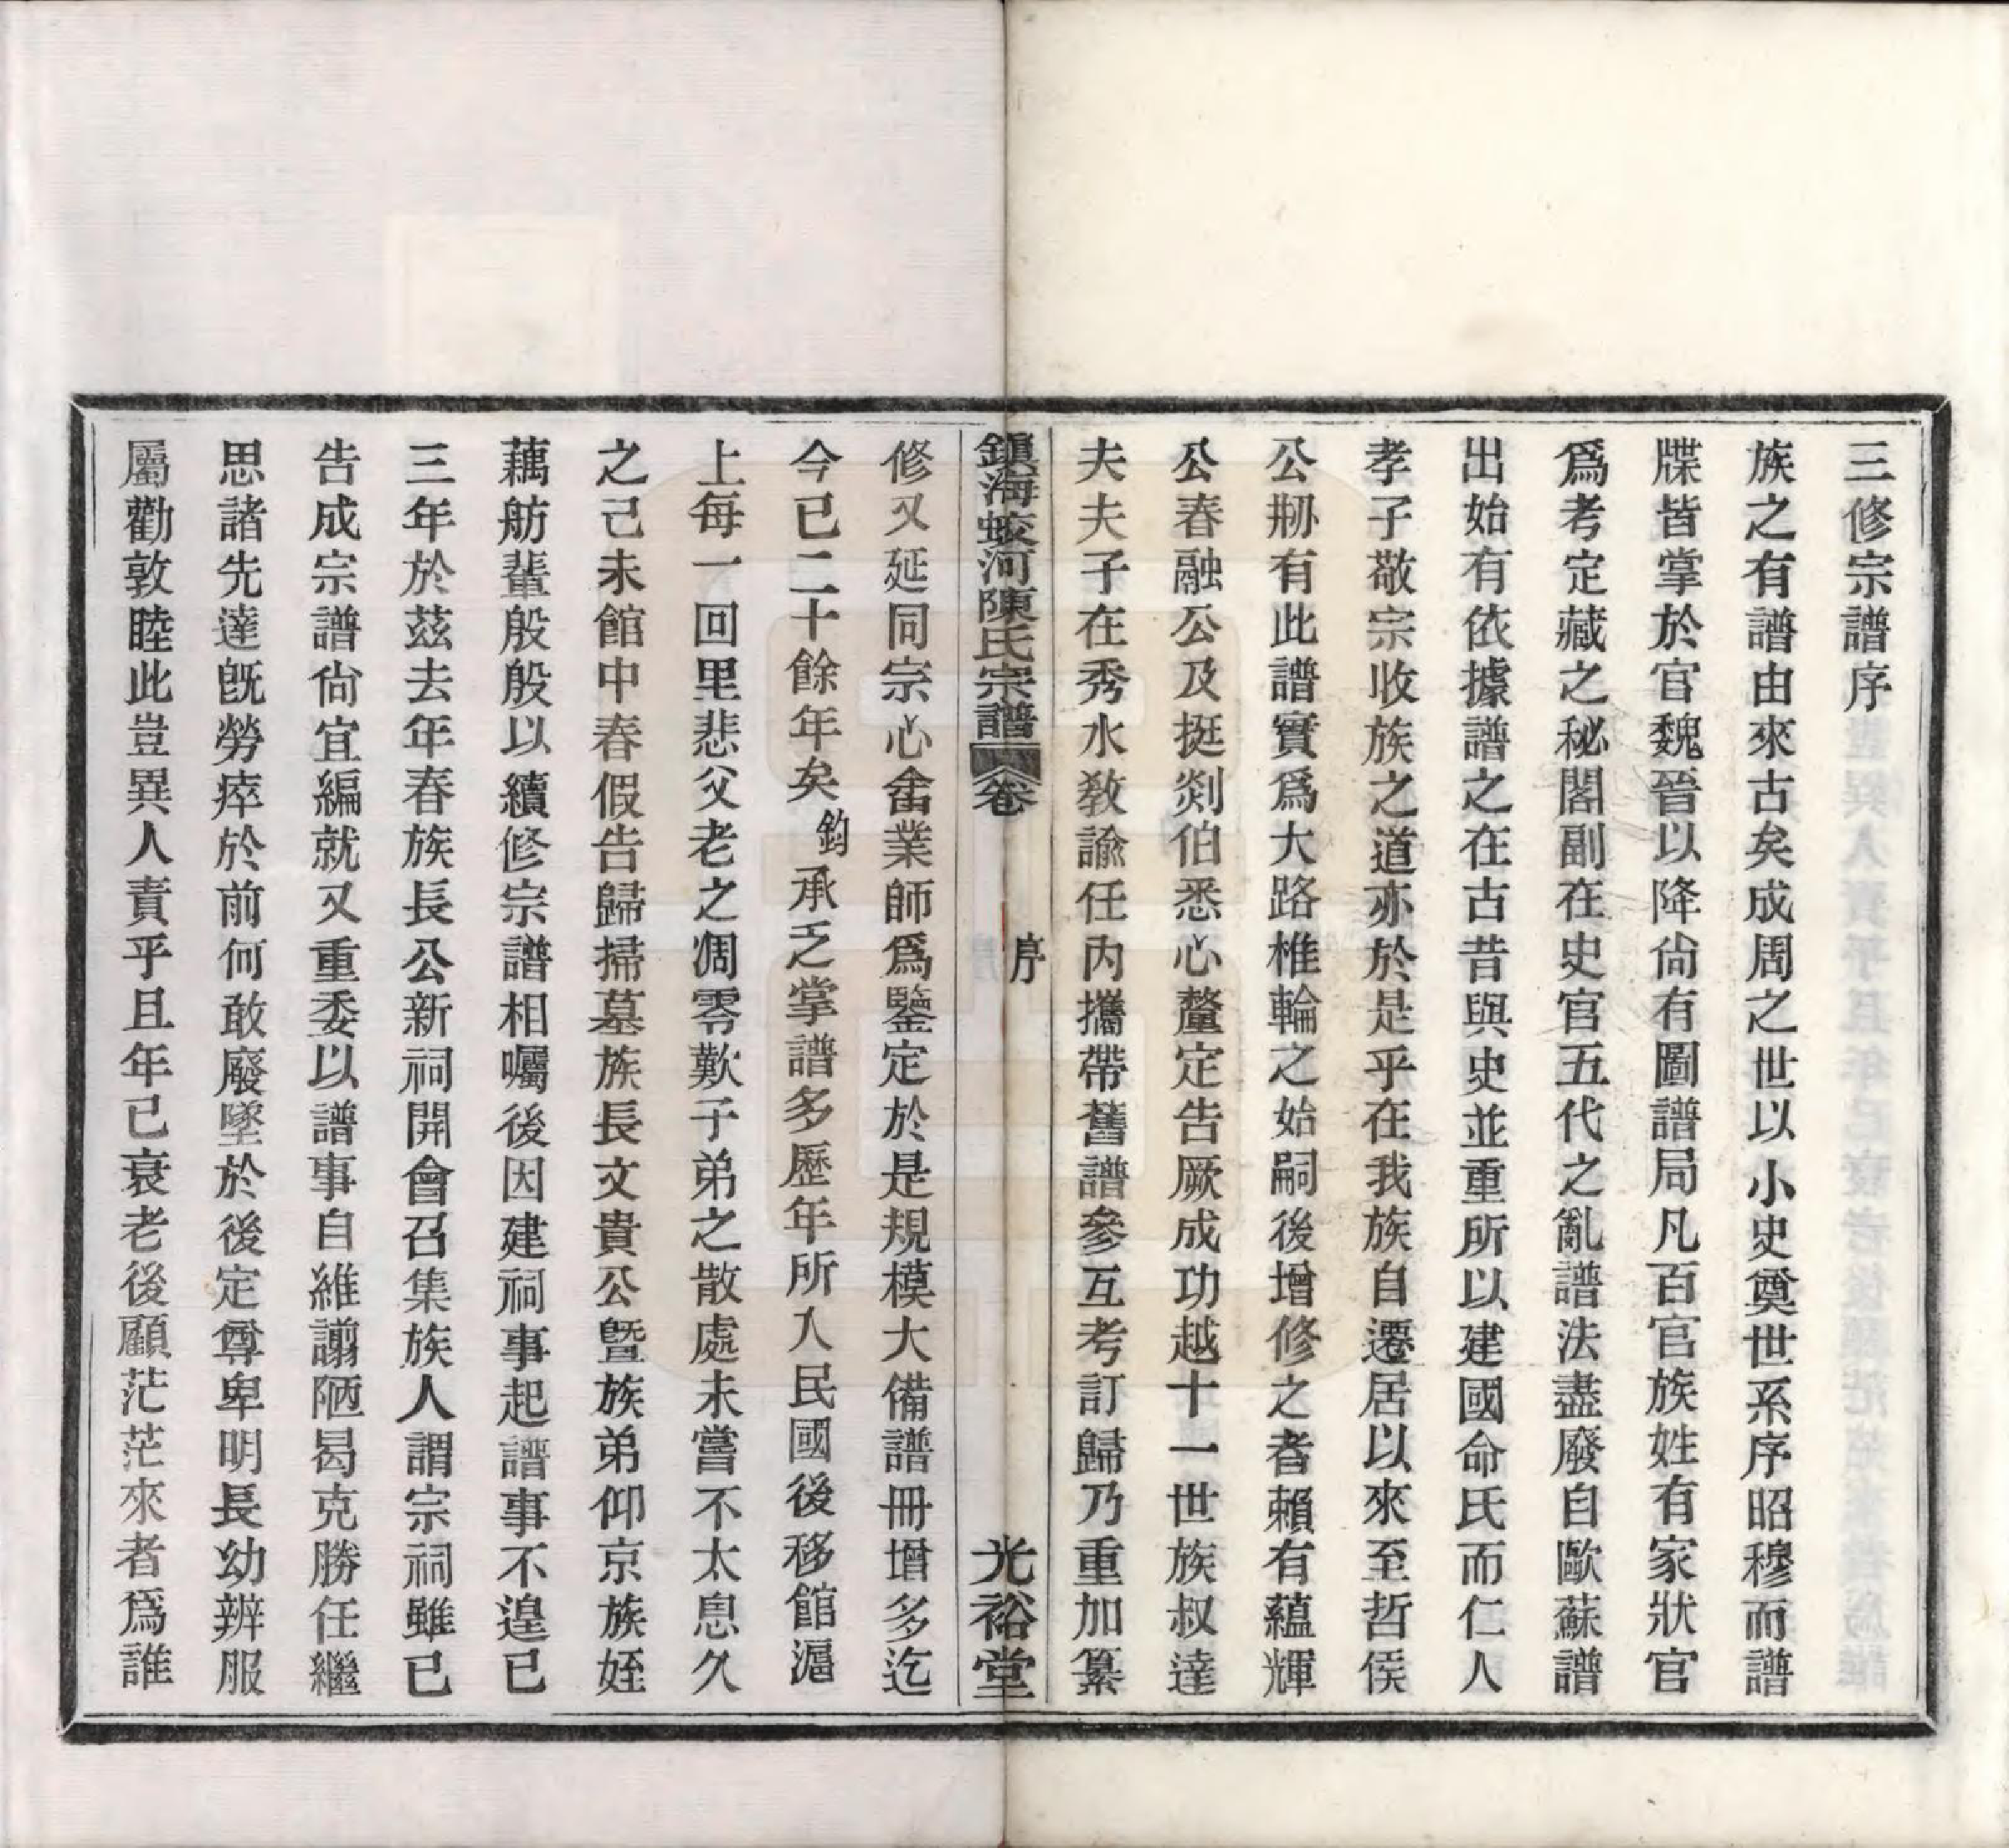 三修宗譜序
族之有譜由來古矣成周之世以小史奠世系序昭穆而譜
牒皆掌於官魏晉以降尙有圖譜局凡百官族姓有家狀官
爲考定藏之秘閣副在史官五代之亂譜法盡廢自歐蘇譜
出始有依據譜之在古昔與史並重所以建國命氏而仁人
孝子敬宗收族之道亦於是乎在我族自遷居以來至哲侯
公剙有此譜實爲大路椎輪之始嗣後增修之者賴有蘊輝
公春融公及挺剡伯悉心釐定告厥成功越十一世族叔達
夫夫子在秀水敎諭任內攜帶舊譜參互考訂歸乃重加纂
鎭海蛟河陳氏宗譜 卷 序 光裕堂
修又延同宗心畬業師爲鑒定於是規模大備譜冊增多迄
今已二十餘年矣鈞承乏掌譜多歷年所入民國後移館滬
上每一回里悲父老之凋零歎子弟之散處未嘗不太息久
之己未館中春假告歸掃墓族長文貴公曁族弟仰京族姪
藕舫輩殷殷以續修宗譜相囑後因建祠事起譜事不遑已
三年於茲去年春族長公新祠開會召集族人謂宗祠雖已
告成宗譜尙宜編就又重委以譜事自維譾陋曷克勝任繼
思諸先達旣勞瘁於前何敢廢墜於後定尊卑明長幼辨服
屬勸敦睦此豈異人責乎且年已衰老後顧茫茫來者爲誰